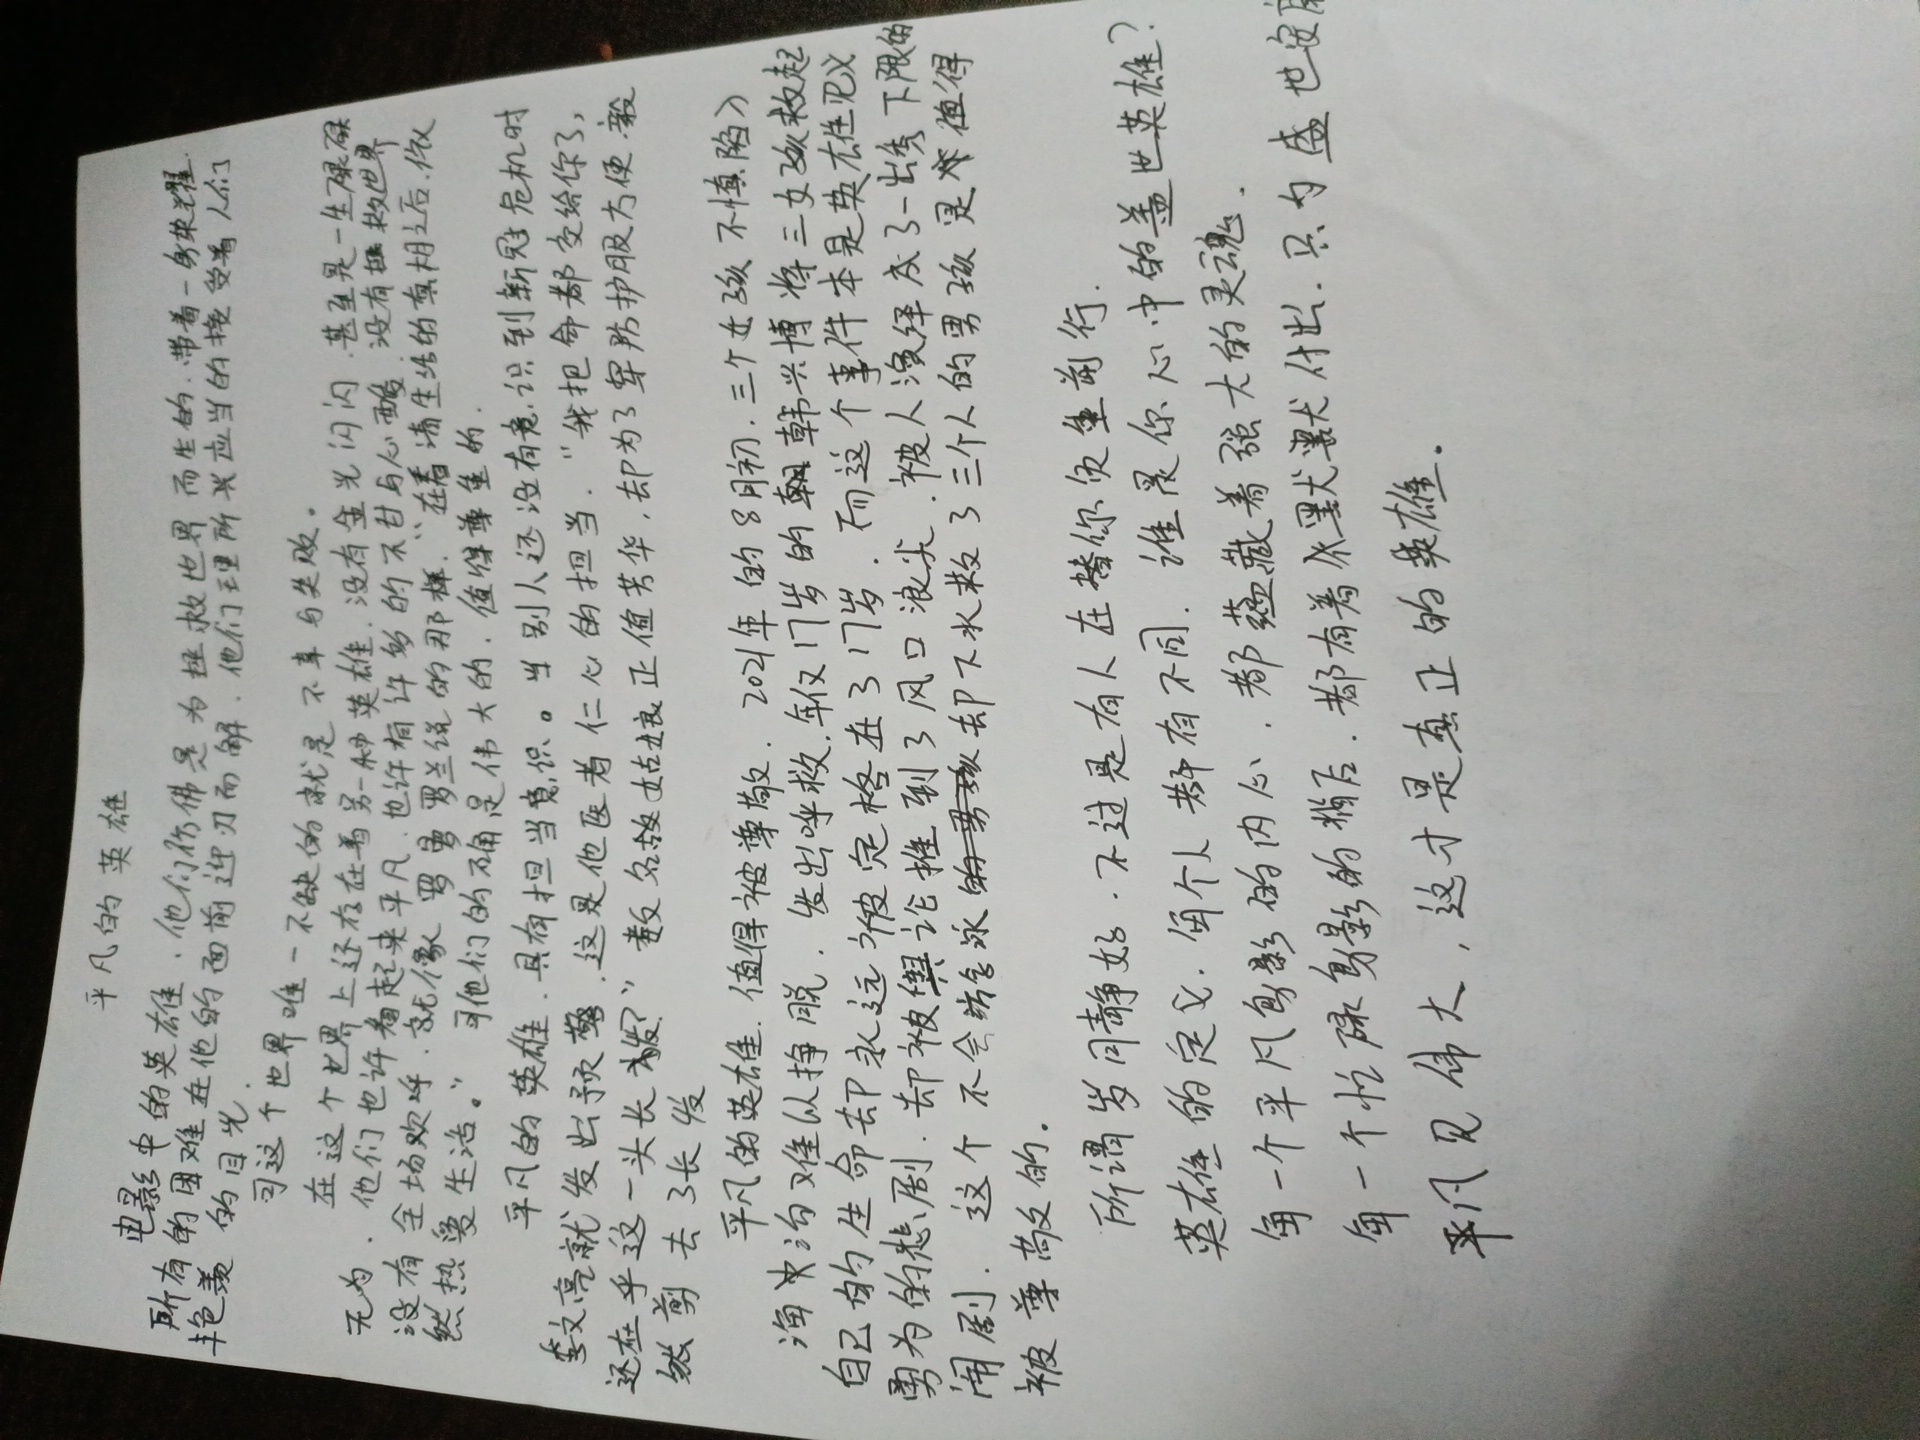 平凡的英雄
电影中的英雄,他们仿佛是为拯救世界而生的.带着一身荣耀.
所有的困难在他的面前迎刃而解.他们理所当的接受着人们
艳羡的目光.
可这个世界唯一不缺的就是不幸与失败。
在这个世界上还存在着另一种英雄.没有金光闪闪.甚至是一生碌碌
无为.他们也许看起来平凡.也许有许多的不甘与心酸.没有拯救世界
没有全场欢呼.就像罗曼罗兰说的那样.“在看清生活的真相之后.依
然热爱生活。”可他们的的确是伟大的.值得尊重的.
平凡的英雄.具有担当意识。当别人还没有意识到新冠危机时
李文亮就发出预警.这是他医者仁心的担当.“我把命都交给你了,
还在乎这一头长发?”数名故姑娘正值芳华,却为了穿防护服方便.毅
然剪去了长发
平凡的英雄.值得被尊敬.2021年的8月初.三个女孩不慎陷入
海中沟难以挣脱.发出呼救.年仅17岁的韩兴博将三女孩救起
自己的生命却永远被定格在了17岁.而这个事件本是英雄见义
勇为的悲剧.却被舆论推到了风口浪尖.被人演绎成了一出秀下限的
闹剧.这个不会游泳却下水救了三个人的男孩是值得
被尊敬的.
所谓岁月静好.不过是有人在替你负重前行.
英雄的定义.每个人都有不同.谁是你心中的盖世英雄?
每一个平凡身影的内心.都蕴藏着强大的灵魂.
每一个忙碌身影的背后.都有着默默付出.只为盛世安
平凡见伟大,这才是真正的英雄.